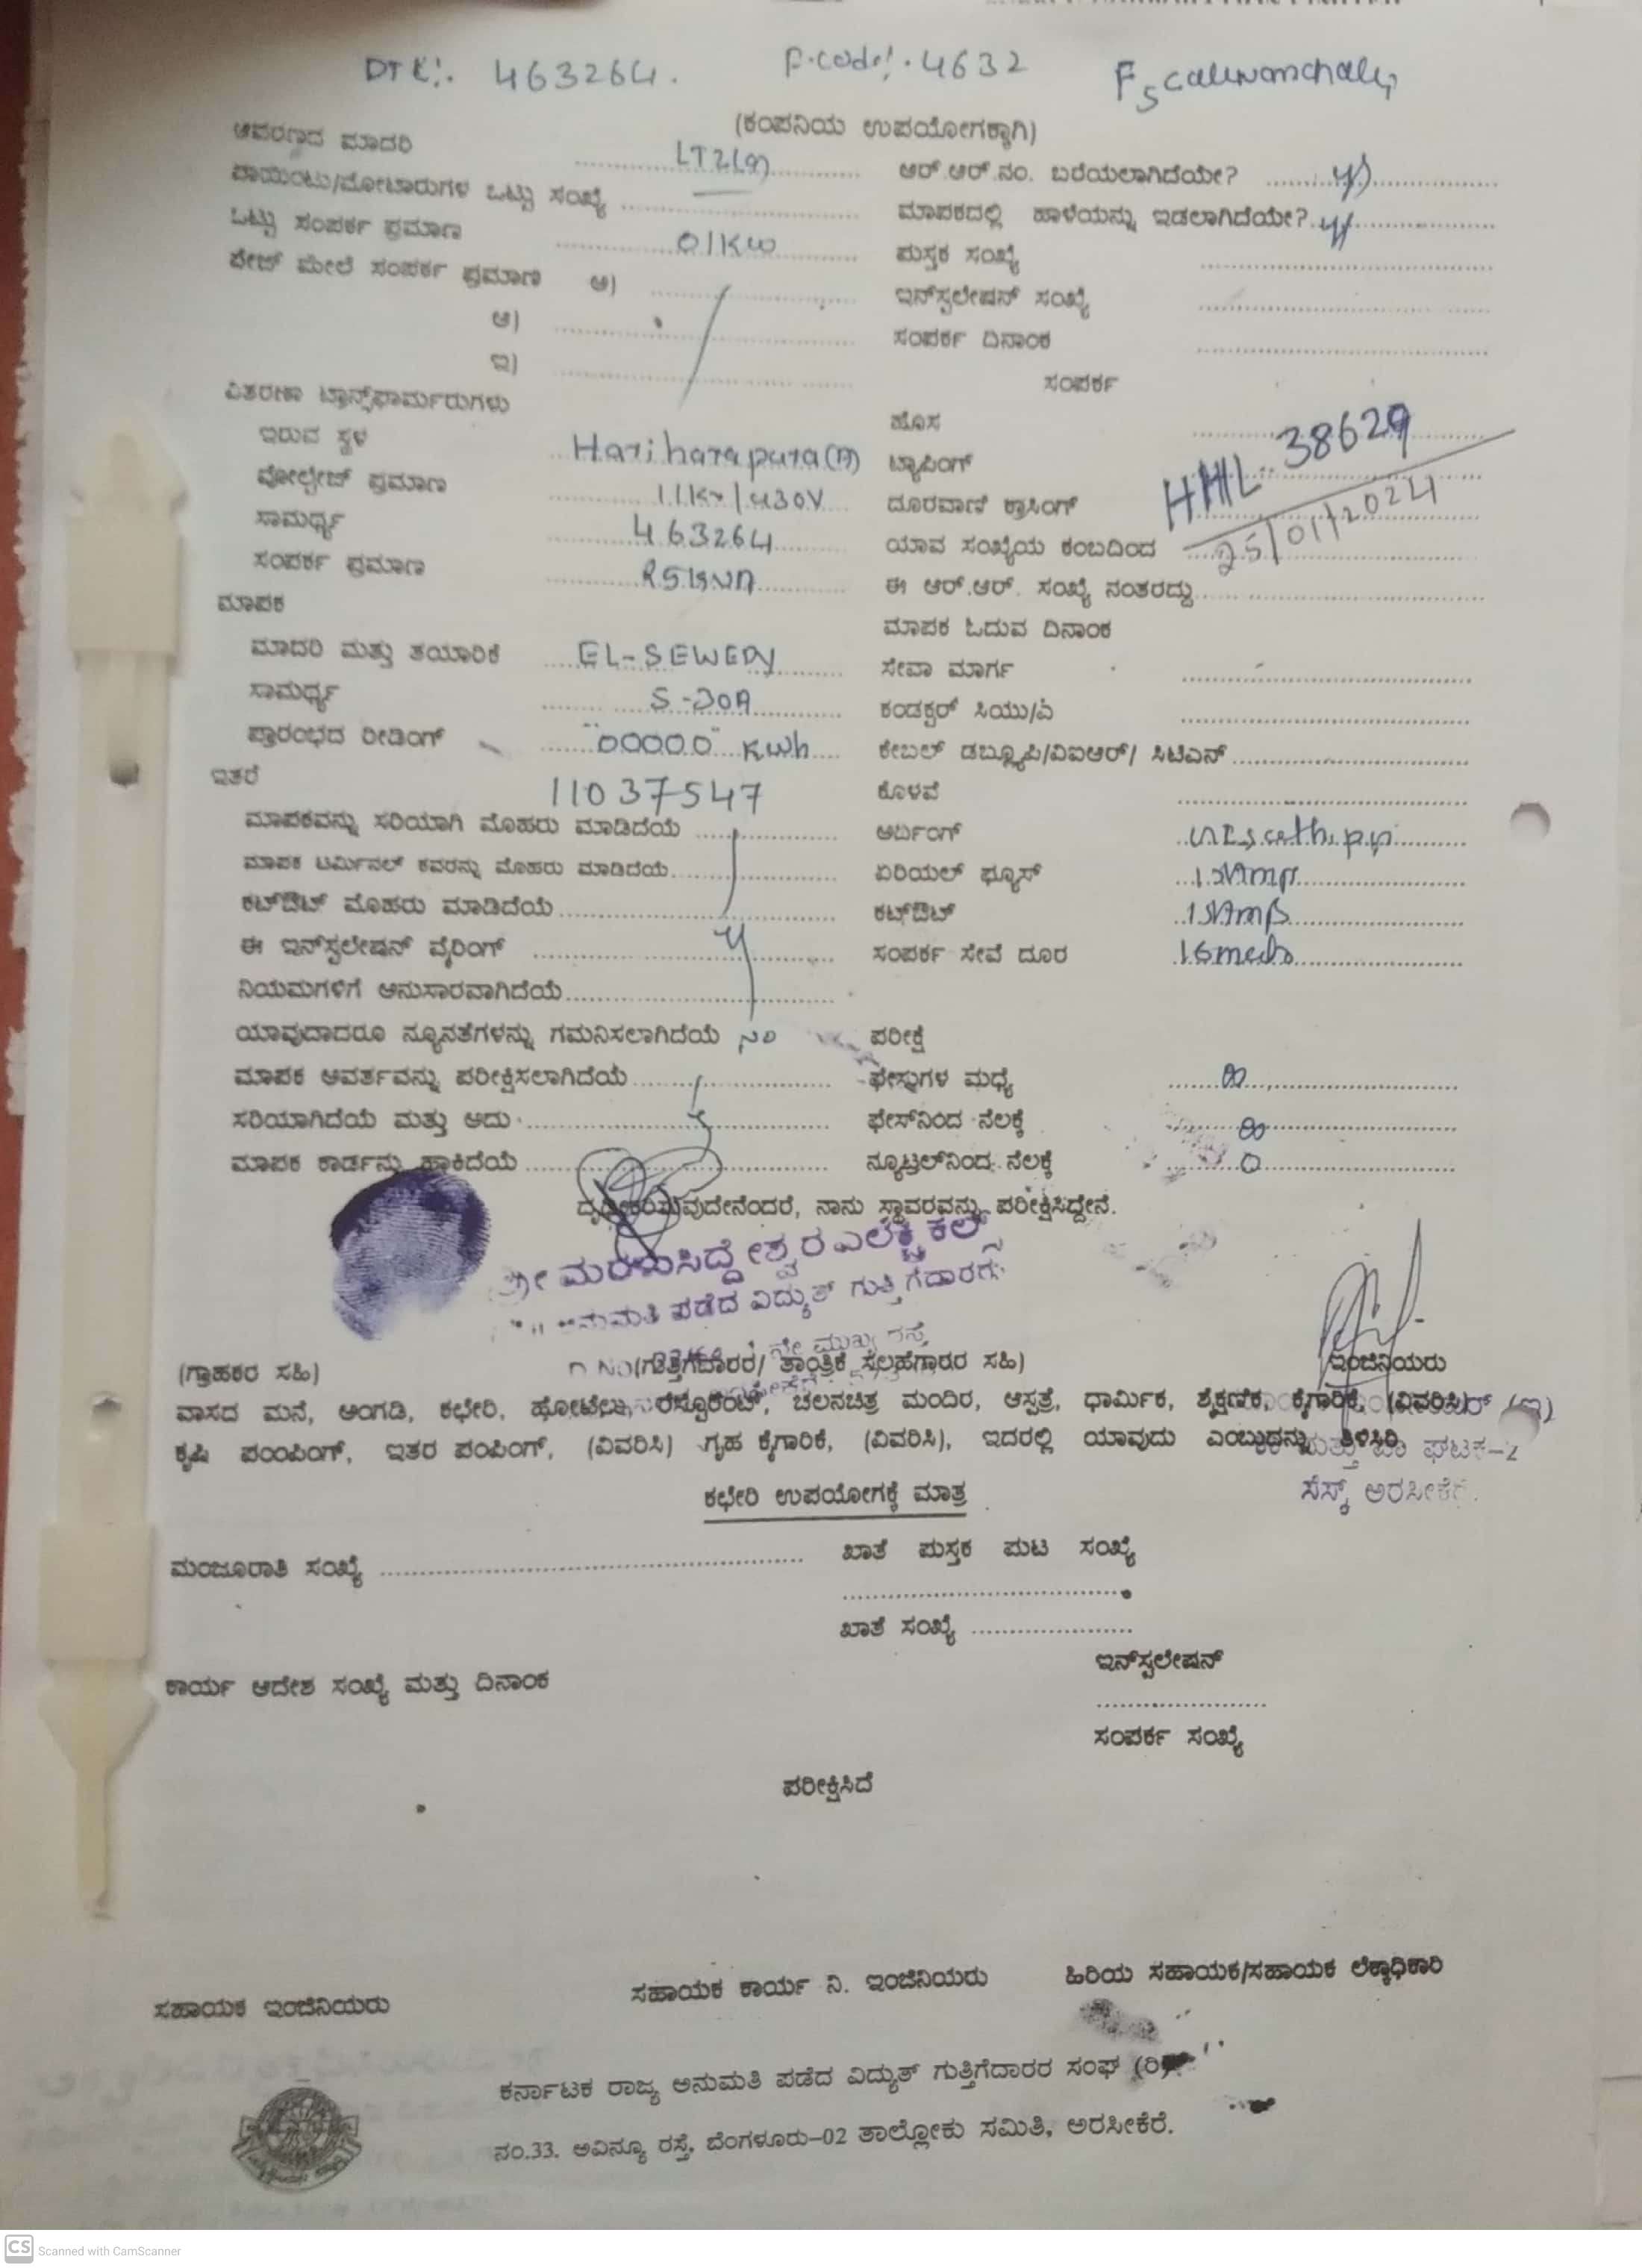 DTK:. 463264. F.code:. 4632 F5
(ಕಂಪನಿಯ ಉಪಯೋಗಕ್ಕಾಗಿ)
ಆವರಣದ ಮಾದರಿ LT2(a) ಆರ್.ಆರ್.ನಂ. ಬರೆಯಲಾಗಿದೆಯೇ?
ಪಾಯಿಂಟು/ಮೋಟಾರುಗಳ ಒಟ್ಟು ಸಂಖ್ಯೆ ಮಾಪಕದಲ್ಲಿ ಹಾಳೆಯನ್ನು ಇಡಲಾಗಿದೆಯೇ?
ಒಟ್ಟು ಸಂಪರ್ಕ ಪ್ರಮಾಣ 01KW ಪುಸ್ತಕ ಸಂಖ್ಯೆ
ಫೇಜ್ ಮೇಲೆ ಸಂಪರ್ಕ ಪ್ರಮಾಣ ಅ) ಇನ್‌ಸ್ಟಲೇಷನ್ ಸಂಖ್ಯೆ
ಆ) ಸಂಪರ್ಕ ದಿನಾಂಕ
ಇ) ಸಂಪರ್ಕ
ವಿತರಣಾ ಟ್ರಾನ್ಸ್‌ಫಾರ್ಮರುಗಳು ಹೊಸ
ಇರುವ ಸ್ಥಳ Hariharapura(M) ಟ್ಯಾಪಿಂಗ್ HHL 38629
ವೋಲ್ಟೇಜ್ ಪ್ರಮಾಣ 11Kv/430V ದೂರವಾಣಿ ಕ್ರಾಸಿಂಗ್ 25/01/2024
ಸಾಮರ್ಥ್ಯ 463264 ಯಾವ ಸಂಖ್ಯೆಯ ಕಂಬದಿಂದ
ಸಂಪರ್ಕ ಪ್ರಮಾಣ ಈ ಆರ್.ಆರ್. ಸಂಖ್ಯೆ ನಂತರದ್ದು
ಮಾಪಕ ಮಾಪಕ ಓದುವ ದಿನಾಂಕ
ಮಾದರಿ ಮತ್ತು ತಯಾರಿಕೆ EL-SEWEDY ಸೇವಾ ಮಾರ್ಗ
ಸಾಮರ್ಥ್ಯ 5-30A ಕಂಡಕ್ಟರ್ ಸಿಯು/ಎ
ಪ್ರಾರಂಭದ ರೀಡಿಂಗ್ "00000" Kwh ಕೇಬಲ್ ಡಬ್ಲ್ಯೂಪಿ/ವಿಐಆರ್/ ಸಿಟಿಎಸ್
ಇತರೆ 11037547 ಕೊಳವೆ
ಮಾಪಕವನ್ನು ಸರಿಯಾಗಿ ಮೊಹರು ಮಾಡಿದೆಯೆ ಅರ್ಥಿಂಗ್
ಮಾಪಕ ಟರ್ಮಿನಲ್ ಕವರನ್ನು ಮೊಹರು ಮಾಡಿದೆಯೆ ಏರಿಯಲ್ ಫ್ಯೂಸ್ 15Amp
ಕಟ್‌ಔಟ್ ಮೊಹರು ಮಾಡಿದೆಯೆ ಕಟ್‌ಔಟ್ 15Amp
ಈ ಇನ್‌ಸ್ಟಲೇಷನ್ ವೈರಿಂಗ್ ಸಂಪರ್ಕ ಸೇವೆ ದೂರ
ನಿಯಮಗಳಿಗೆ ಅನುಸಾರವಾಗಿದೆಯೆ
ಯಾವುದಾದರೂ ನ್ಯೂನತೆಗಳನ್ನು ಗಮನಿಸಲಾಗಿದೆಯೆ No ಪರೀಕ್ಷೆ
ಮಾಪಕ ಆವರ್ತವನ್ನು ಪರೀಕ್ಷಿಸಲಾಗಿದೆಯೆ ಫೇಸ್ಗುಗಳ ಮಧ್ಯೆ
ಸರಿಯಾಗಿದೆಯೆ ಮತ್ತು ಅದು ಫೇಸ್‌ನಿಂದ ನೆಲಕ್ಕೆ
ಮಾಪಕ ಕಾರ್ಡನ್ನು ಹಾಕಿದೆಯೆ ನ್ಯೂಟ್ರಲ್‌ನಿಂದ ನೆಲಕ್ಕೆ 0
ದೃಢೀಕರಿಸುವುದೇನೆಂದರೆ, ನಾನು ಸ್ಥಾವರವನ್ನು ಪರೀಕ್ಷಿಸಿದ್ದೇನೆ.
ಶ್ರೀ ಮರಳುಸಿದ್ದೇಶ್ವರ ಎಲೆಕ್ಟ್ರಿಕಲ್ಸ್
ಅನುಮತಿ ಪಡೆದ ವಿದ್ಯುತ್ ಗುತ್ತಿಗೆದಾರರು
ನೇ ಮುಖ್ಯ ರಸ್ತೆ
(ಗ್ರಾಹಕರ ಸಹಿ) (ಗುತ್ತಿಗೆದಾರರ/ ತಾಂತ್ರಿಕ ಸಲಹೆಗಾರರ ಸಹಿ) ಇಂಜಿನಿಯರು
ವಾಸದ ಮನೆ, ಅಂಗಡಿ, ಕಛೇರಿ, ಹೋಟೆಲು, ರೆಸ್ಟೂರೆಂಟ್, ಚಲನಚಿತ್ರ ಮಂದಿರ, ಆಸ್ಪತ್ರೆ, ಧಾರ್ಮಿಕ, ಶೈಕ್ಷಣಿಕ, ಕೈಗಾರಿಕೆ, (ವಿವರಿಸಿ)
ಕೃಷಿ ಪಂಪಿಂಗ್, ಇತರ ಪಂಪಿಂಗ್, (ವಿವರಿಸಿ) ಗೃಹ ಕೈಗಾರಿಕೆ, (ವಿವರಿಸಿ), ಇದರಲ್ಲಿ ಯಾವುದು ಎಂಬುದನ್ನು ತಿಳಿಸಿರಿ
ಘಟಕ-2
ಸೆಸ್ಕ್ ಅರಸೀಕೆರೆ.
ಕಛೇರಿ ಉಪಯೋಗಕ್ಕೆ ಮಾತ್ರ
ಮಂಜೂರಾತಿ ಸಂಖ್ಯೆ ಖಾತೆ ಪುಸ್ತಕ ಪುಟ ಸಂಖ್ಯೆ
ಖಾತೆ ಸಂಖ್ಯೆ
ಇನ್‌ಸ್ಟಲೇಷನ್
ಕಾರ್ಯ ಆದೇಶ ಸಂಖ್ಯೆ ಮತ್ತು ದಿನಾಂಕ
ಸಂಪರ್ಕ ಸಂಖ್ಯೆ
ಪರೀಕ್ಷಿಸಿದೆ
ಸಹಾಯಕ ಇಂಜಿನಿಯರು ಸಹಾಯಕ ಕಾರ್ಯ ನಿ. ಇಂಜಿನಿಯರು ಹಿರಿಯ ಸಹಾಯಕ/ಸಹಾಯಕ ಲೆಕ್ಕಾಧಿಕಾರಿ
ಕರ್ನಾಟಕ ರಾಜ್ಯ ಅನುಮತಿ ಪಡೆದ ವಿದ್ಯುತ್ ಗುತ್ತಿಗೆದಾರರ ಸಂಘ (ರಿ)
ನಂ.33. ಅವಿನ್ಯೂ ರಸ್ತೆ, ಬೆಂಗಳೂರು-02 ತಾಲ್ಲೋಕು ಸಮಿತಿ, ಅರಸೀಕೆರೆ.
CS Scanned with CamScanner